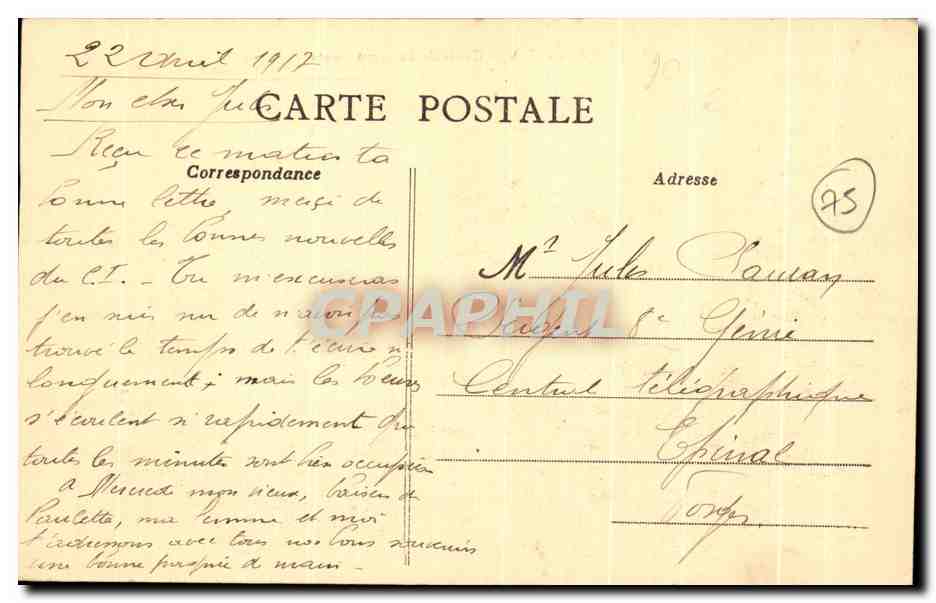 22 avril 1917
Mon cher Jules
CARTE POSTALE
Reçu ce matin ta
Correspondance
bonne lettre, merci de
toutes les bonnes nouvelles
du C.I. - Tu m'excuseras
j'en suis sur de n'avoir pas
trouvé le temps de t'écrire
longuement; mais les heures
s'écoulent si rapidement que
toutes les minutes sont bien occupées
A Mercredi mon vieux, baisers de
Paulette, ma femme et moi
t'adressons avec tous nos bons souvenirs
une bonne poignée de main -
Adresse
75
Mr Jules
Sergent 8e Génie
Central télégraphique
Epinal
Vosges
CPAPHIL